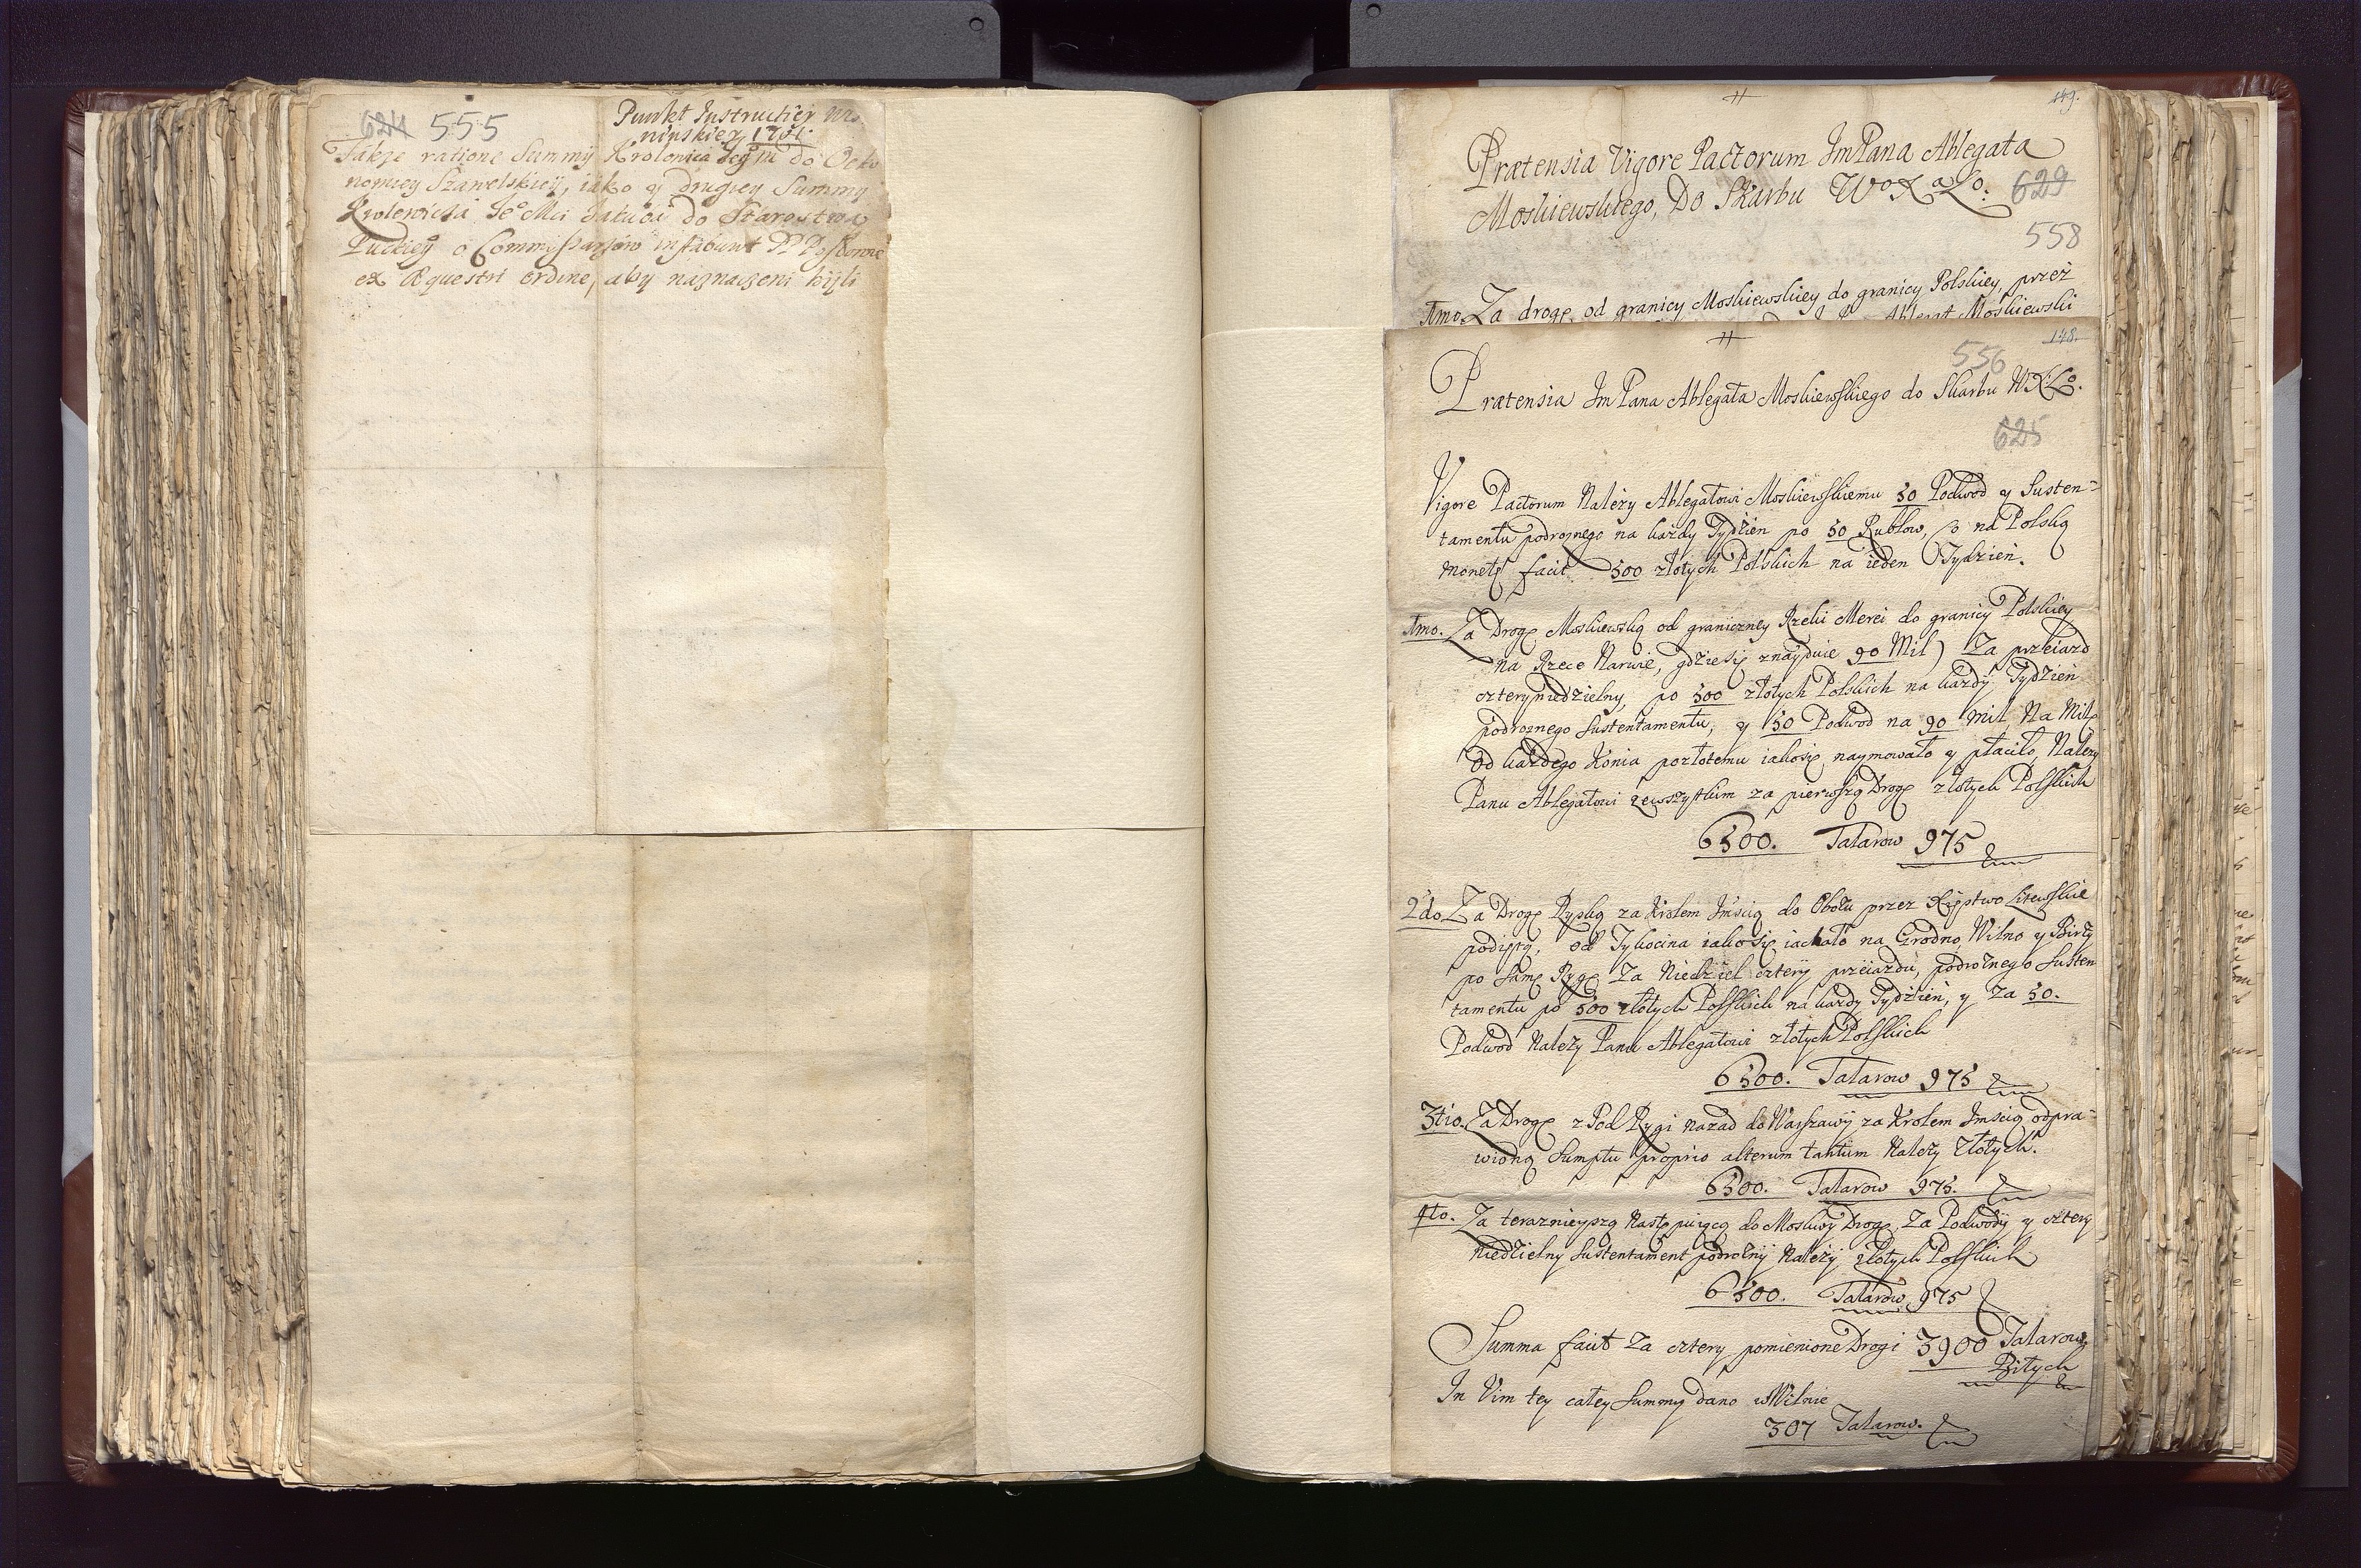 624 555
Punkt Instructiey
1701.
Także ratione Summy Krolewica Jegm do Oeko
nomiey Szawelskiey, iako y drugiey Summy
Krolewicza Je°Mci Jakuba do Starostwa
Puckieg o Commissarzow instabunt PP Posłowie
ex Equestri ordine, aby naznaczeni byli
149.
Prætensia Vigore Pactorum JmPana Ablegata
Moskiewskiego, Do Skarbu W° X a L°.
629
558
1mo. Za drogę od granicy Moskiewskiey do granicy Polskiey, przez
Ablegat Moskiewski
148.
556
Prætensia Jm Pana Ablegata Moskiewskiego do Skarbu WXL°.
625
Vigore Pactorum Należy Ablegatowi Moskiewskiemu 50 Podwod y Susten-
tamentu podroznego na każdy Tydzien po 50 Rublow, co na Polską
Monetę facit 500 złotych Polskich na ieden Tydzień.
1mo. Za Drogę Moskiewską od graniczney Rzeki Merei do granicy Polskiey
na Rzece Narwie, gdziesię znayduie 90 Mil) Za przeiazd
czteryniedzielny, po 500 złotych Polskich na każdy Tydzień
podroznego Sustentamentu, y 50 Podwod na 90 Mil, Na Milę
Od każdego Konia pozłotemu iakosię naymowało y płaciło, Należy
Panu Ablegatowi zewszystkim za pierwszą Drogę złotych Polskich
6500. Talarow 975
2do Za Drogę Ryską za Krolem Jmścią do Obozu przez Xięstwo Litewskie
podiętą, od Tykocina iakosię iachało na Grodno, Wilno y Birże
po Samę Rygę Za Niedziel cztery przeiazdu, podroznego Susten
tamentu po 500 złotych Polskich na każdy Tydzień, y Za 50.
Podwod Należy Panu Ablegatowi złotych Polskich
6500. Talarow 975
3tio. Za Drogę z Pod Rygi nazad do Warszawy za Krolem Jmścią odpra-
wioną Sumptu proprio alterum tantum Należy Złotych.
6500. Talarow 975.
4to. Za teraznieyszą Następuiącą do Moskwy Drogę, Za Podwody y cztery
niedzielny Sustentament podrozny Należy złotych Polskich
6500. Talarow 975
Summa facit Za cztery pomienione Drogi 3900 Talarow
Bitych
In Vim tey całey Summy dano w Wilnie
307 Talarow.